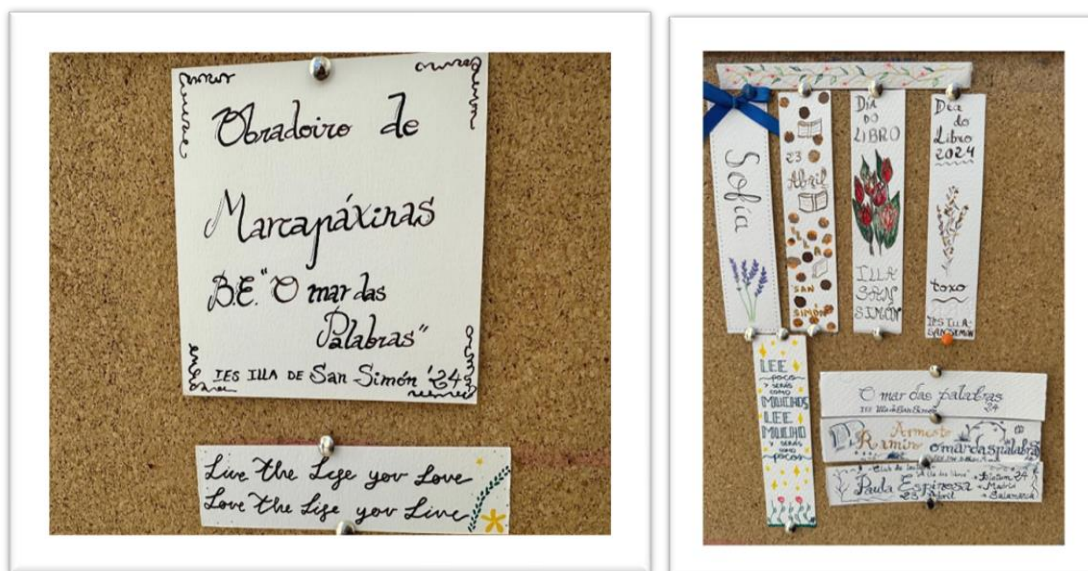 Obradoiro de
Marcapáxinas
B.E. "O mar das
Palabras"
IES ILLA DE San Simón '24
Live the Life you Love
Love the Life you Live
Sofía
23
Abril
ILLA
SAN
SIMÓN
DÍA
DO
LIBRO
ILLA
SAN
SIMÓN
Día
do
Libro
2024
toxo
IES ILLA
SAN SIMÓN
LEE
poco
y serás
como
MUCHOS
LEE
MUCHO
y serás
como
pocos
O mar das palabras
IES Illa de San Simón 24
Armesto
Ramiro omardaspalabras
Paula Espinosa
23 Abril
Madrid
Salamanca